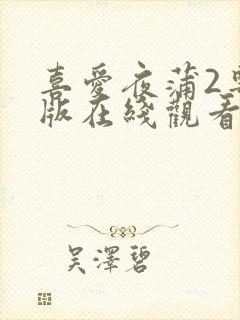 喜愛夜蒲2粵
版在綫觀看
吳澤碧